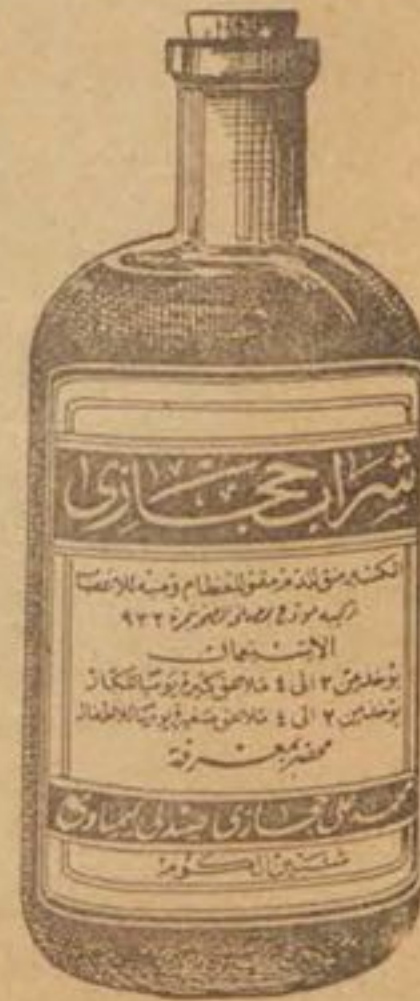 شراب حجازى
اكسير منق للدم مقو للعظام ومنبه للاعصاب
تركيبه مودع بمصلحة الصحة نمرة ٩٣٢
الاستعمال
يوخذ من ٣ الى ٤ ملاعق كبيرة يوميا للكبار
يوخذ من ٢ الى ٤ ملاعق صغيرة يوميا للاطفال
محضر بمعرفة
محمد على حجازى صيدلى كيماوى
شبين الكوم